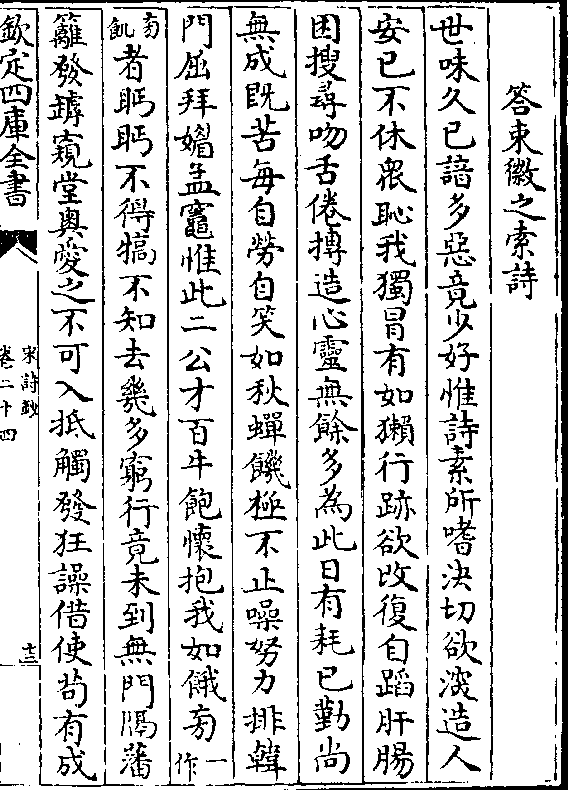 答束徽之索詩
世味久已諳多惡竟少好惟詩素所嗜決切欲深造人
安已不休衆恥我獨冒有如獺行跡欲改復自蹈肝腸
困搜尋吻舌倦摶造心靈無餘多為此日有耗已勤尚
無成既苦每自勞自笑如秋蟬饑極不止噪努力排韓
門屈拜媚孟竈惟此二公才百牛飽懷抱我如餓芻一作
芻飢者眄眄不得犒不知去幾多窮行竟未到無門隔藩
籬發罅窺堂奥愛之不可入抵觸發狂譟借使茍有成
欽定四庫全書
宋詩鈔
卷二十四
十三